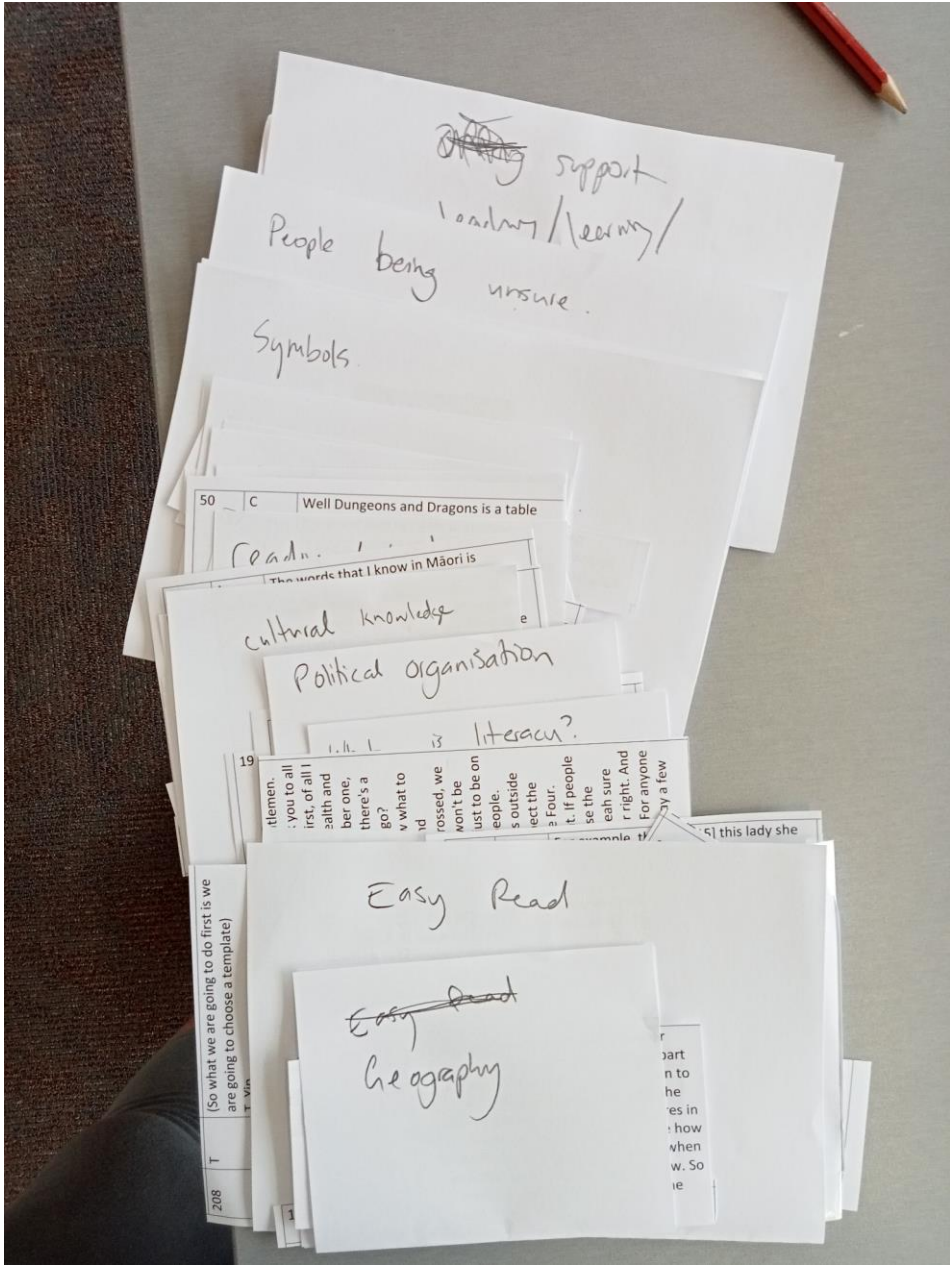 support
/learning/
People being unsure.
Symbols
50 C Well Dungeons and Dragons is a table
The words that I know in Māori is
e
cultural knowledge
Political organisation
is literacy?
19
tlemen.
you to all
irst, of all I
ealth and
ber one,
there's a
go?
v what to
nd
rossed, we
won't be
ust to be on
eople.
s outside
ect the
e Four.
t. If people
se the
eah sure
r right. And
For anyone
ay a few
example, th
5] this lady she
Easy Read
208 T (So what we are going to do first is we
are going to choose a template)
T Yin
Easy Read
Geography
r
part
n to
he
es in
how
when
w. So
ne
1